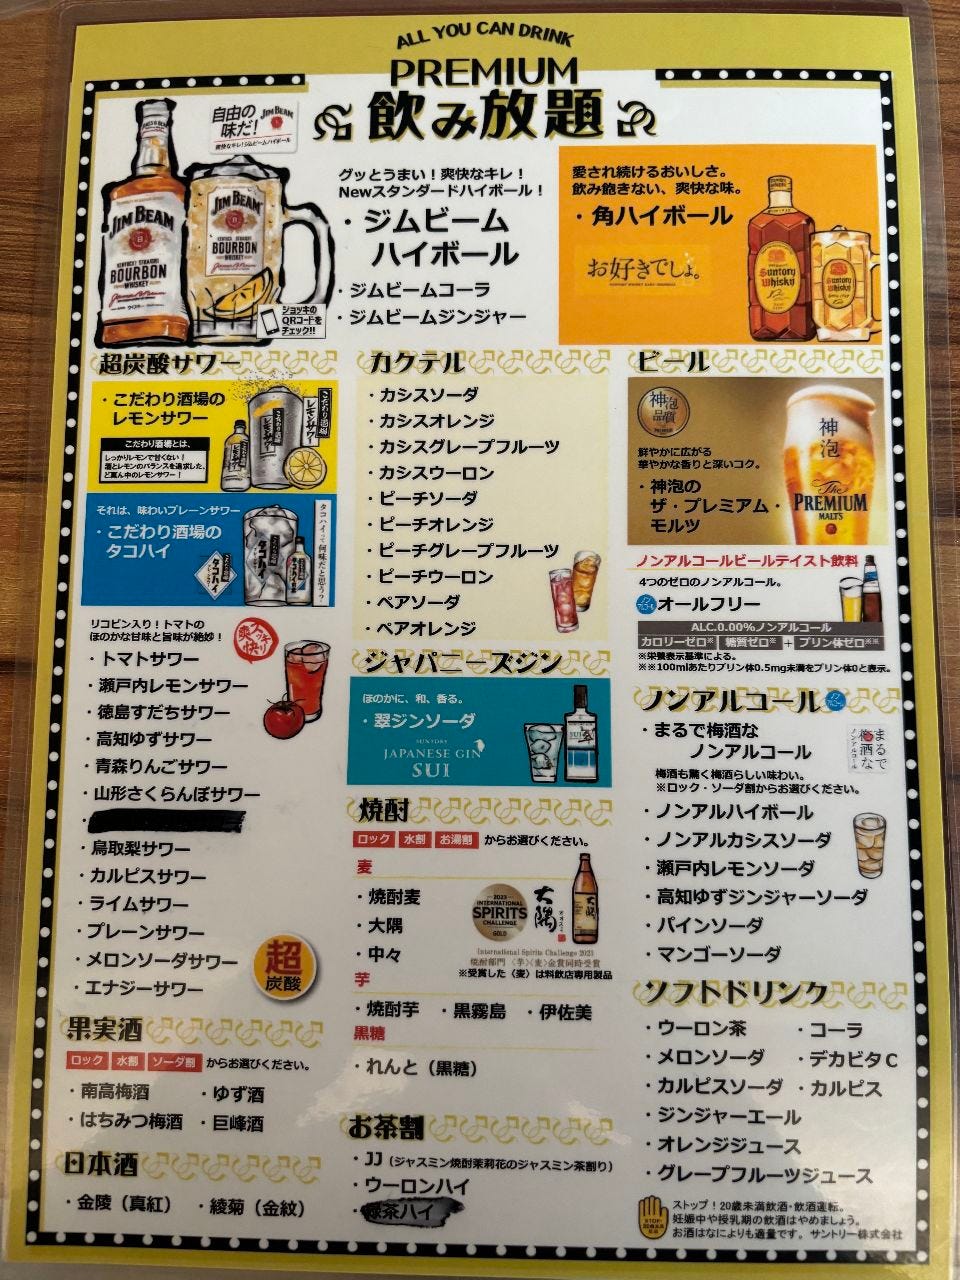 ALL YOU CAN DRINK
PREMIUM
飲み放題
自由の
味だ!
JIM BEAM
爽快なキレ!ジムビームハイボール
JIM BEAM
KENTUCKY STRAIGHT
BOURBON
WHISKEY
JIM BEAM
KENTUCKY STRAIGHT
BOURBON
WHISKEY
ジョッキの
QRコードを
チェック!!
グッとうまい!爽快なキレ!
Newスタンダードハイボール!
・ジムビーム
ハイボール
・ジムビームコーラ
・ジムビームジンジャー
愛され続けるおいしさ。
飲み飽きない、爽快な味。
・角ハイボール
お好きでしょ。
Suntory
Whisky
Suntory
Whisky
超炭酸サワー
・こだわり酒場の
レモンサワー
こだわり酒場とは、
しっかりレモンで甘くない!
酒とレモンのバランスを追求した、
ど真ん中のレモンサワー!
こだわり酒場の
レモンサワー
それは、味わいプレーンサワー
・こだわり酒場の
タコハイ
こだわり酒場の
タコハイ
タコハイって何味だと思う?
リコピン入り!トマトの
ほのかな甘味と旨味が絶妙!
スッキリ
爽快
・トマトサワー
・瀬戸内レモンサワー
・徳島すだちサワー
・高知ゆずサワー
・青森りんごサワー
・山形さくらんぼサワー
・
・鳥取梨サワー
・カルピスサワー
・ライムサワー
・プレーンサワー
・メロンソーダサワー
・エナジーサワー
超
炭酸
果実酒
ロック 水割 ソーダ割 からお選びください。
・南高梅酒 ・ゆず酒
・はちみつ梅酒 ・巨峰酒
日本酒
・金陵(真紅) ・綾菊(金紋)
カクテル
・カシスソーダ
・カシスオレンジ
・カシスグレープフルーツ
・カシスウーロン
・ピーチソーダ
・ピーチオレンジ
・ピーチグレープフルーツ
・ピーチウーロン
・ペアソーダ
・ペアオレンジ
ジャパニーズジン
ほのかに、和、香る。
・翠ジンソーダ
SUNTORY
JAPANESE GIN
SUI
焼酎
ロック 水割 お湯割 からお選びください。
麦
・焼酎麦
・大隅
・中々
2023
INTERNATIONAL
SPIRITS
CHALLENGE
GOLD
大隅
International Spirits Challenge 2023
焼酎部門〈芋〉〈麦〉金賞同時受賞
※受賞した〈麦〉は料飲店専用製品
芋
・焼酎芋 ・黒霧島 ・伊佐美
黒糖
・れんと(黒糖)
お茶割
・JJ(ジャスミン焼酎茉莉花のジャスミン茶割り)
・ウーロンハイ
・緑茶ハイ
ビール
神泡
品質
PREMIUM
神泡
The
PREMIUM
MALT'S
鮮やかに広がる
華やかな香りと深いコク。
・神泡の
ザ・プレミアム・
モルツ
ノンアルコールビールテイスト飲料
4つのゼロのノンアルコール。
ノンアルコール オールフリー
ALC.0.00%ノンアルコール
カロリーゼロ※ 糖質ゼロ※ + プリン体ゼロ※※
※栄養表示基準による。
※※100mlあたりプリン体0.5mg未満をプリン体0と表示。
ノンアルコール ノンアルコール
・まるで梅酒な
ノンアルコール
まるで
梅酒な
ノンアルコール
梅酒も驚く梅酒らしい味わい。
※ロック・ソーダ割からお選びください。
・ノンアルハイボール
・ノンアルカシスソーダ
・瀬戸内レモンソーダ
・高知ゆずジンジャーソーダ
・パインソーダ
・マンゴーソーダ
ソフトドリンク
・ウーロン茶 ・コーラ
・メロンソーダ ・デカビタC
・カルピスソーダ ・カルピス
・ジンジャーエール
・オレンジジュース
・グレープフルーツジュース
ストップ!20歳未満飲酒・飲酒運転。
妊娠中や授乳期の飲酒はやめましょう。
お酒はなによりも適量です。サントリー株式会社